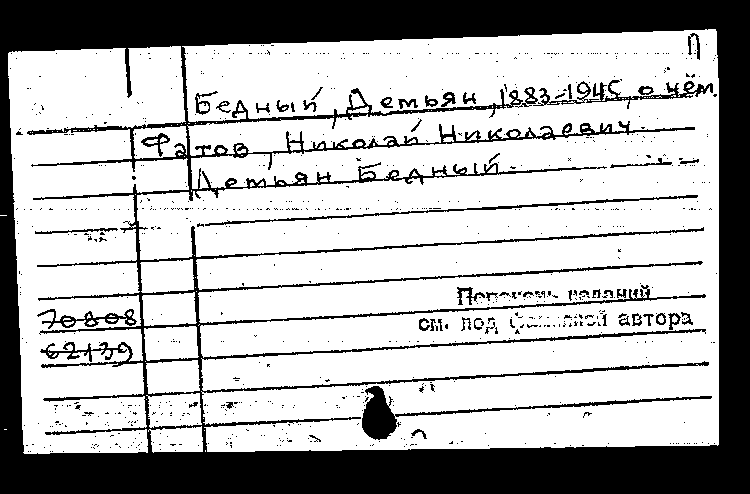 П
Бедный, Демьян, 1883-1945, о нём.
Фатов, Николай Николаевич.
Демьян Бедный.
Перечень изданий
70808
см. под фамилией автора
62139